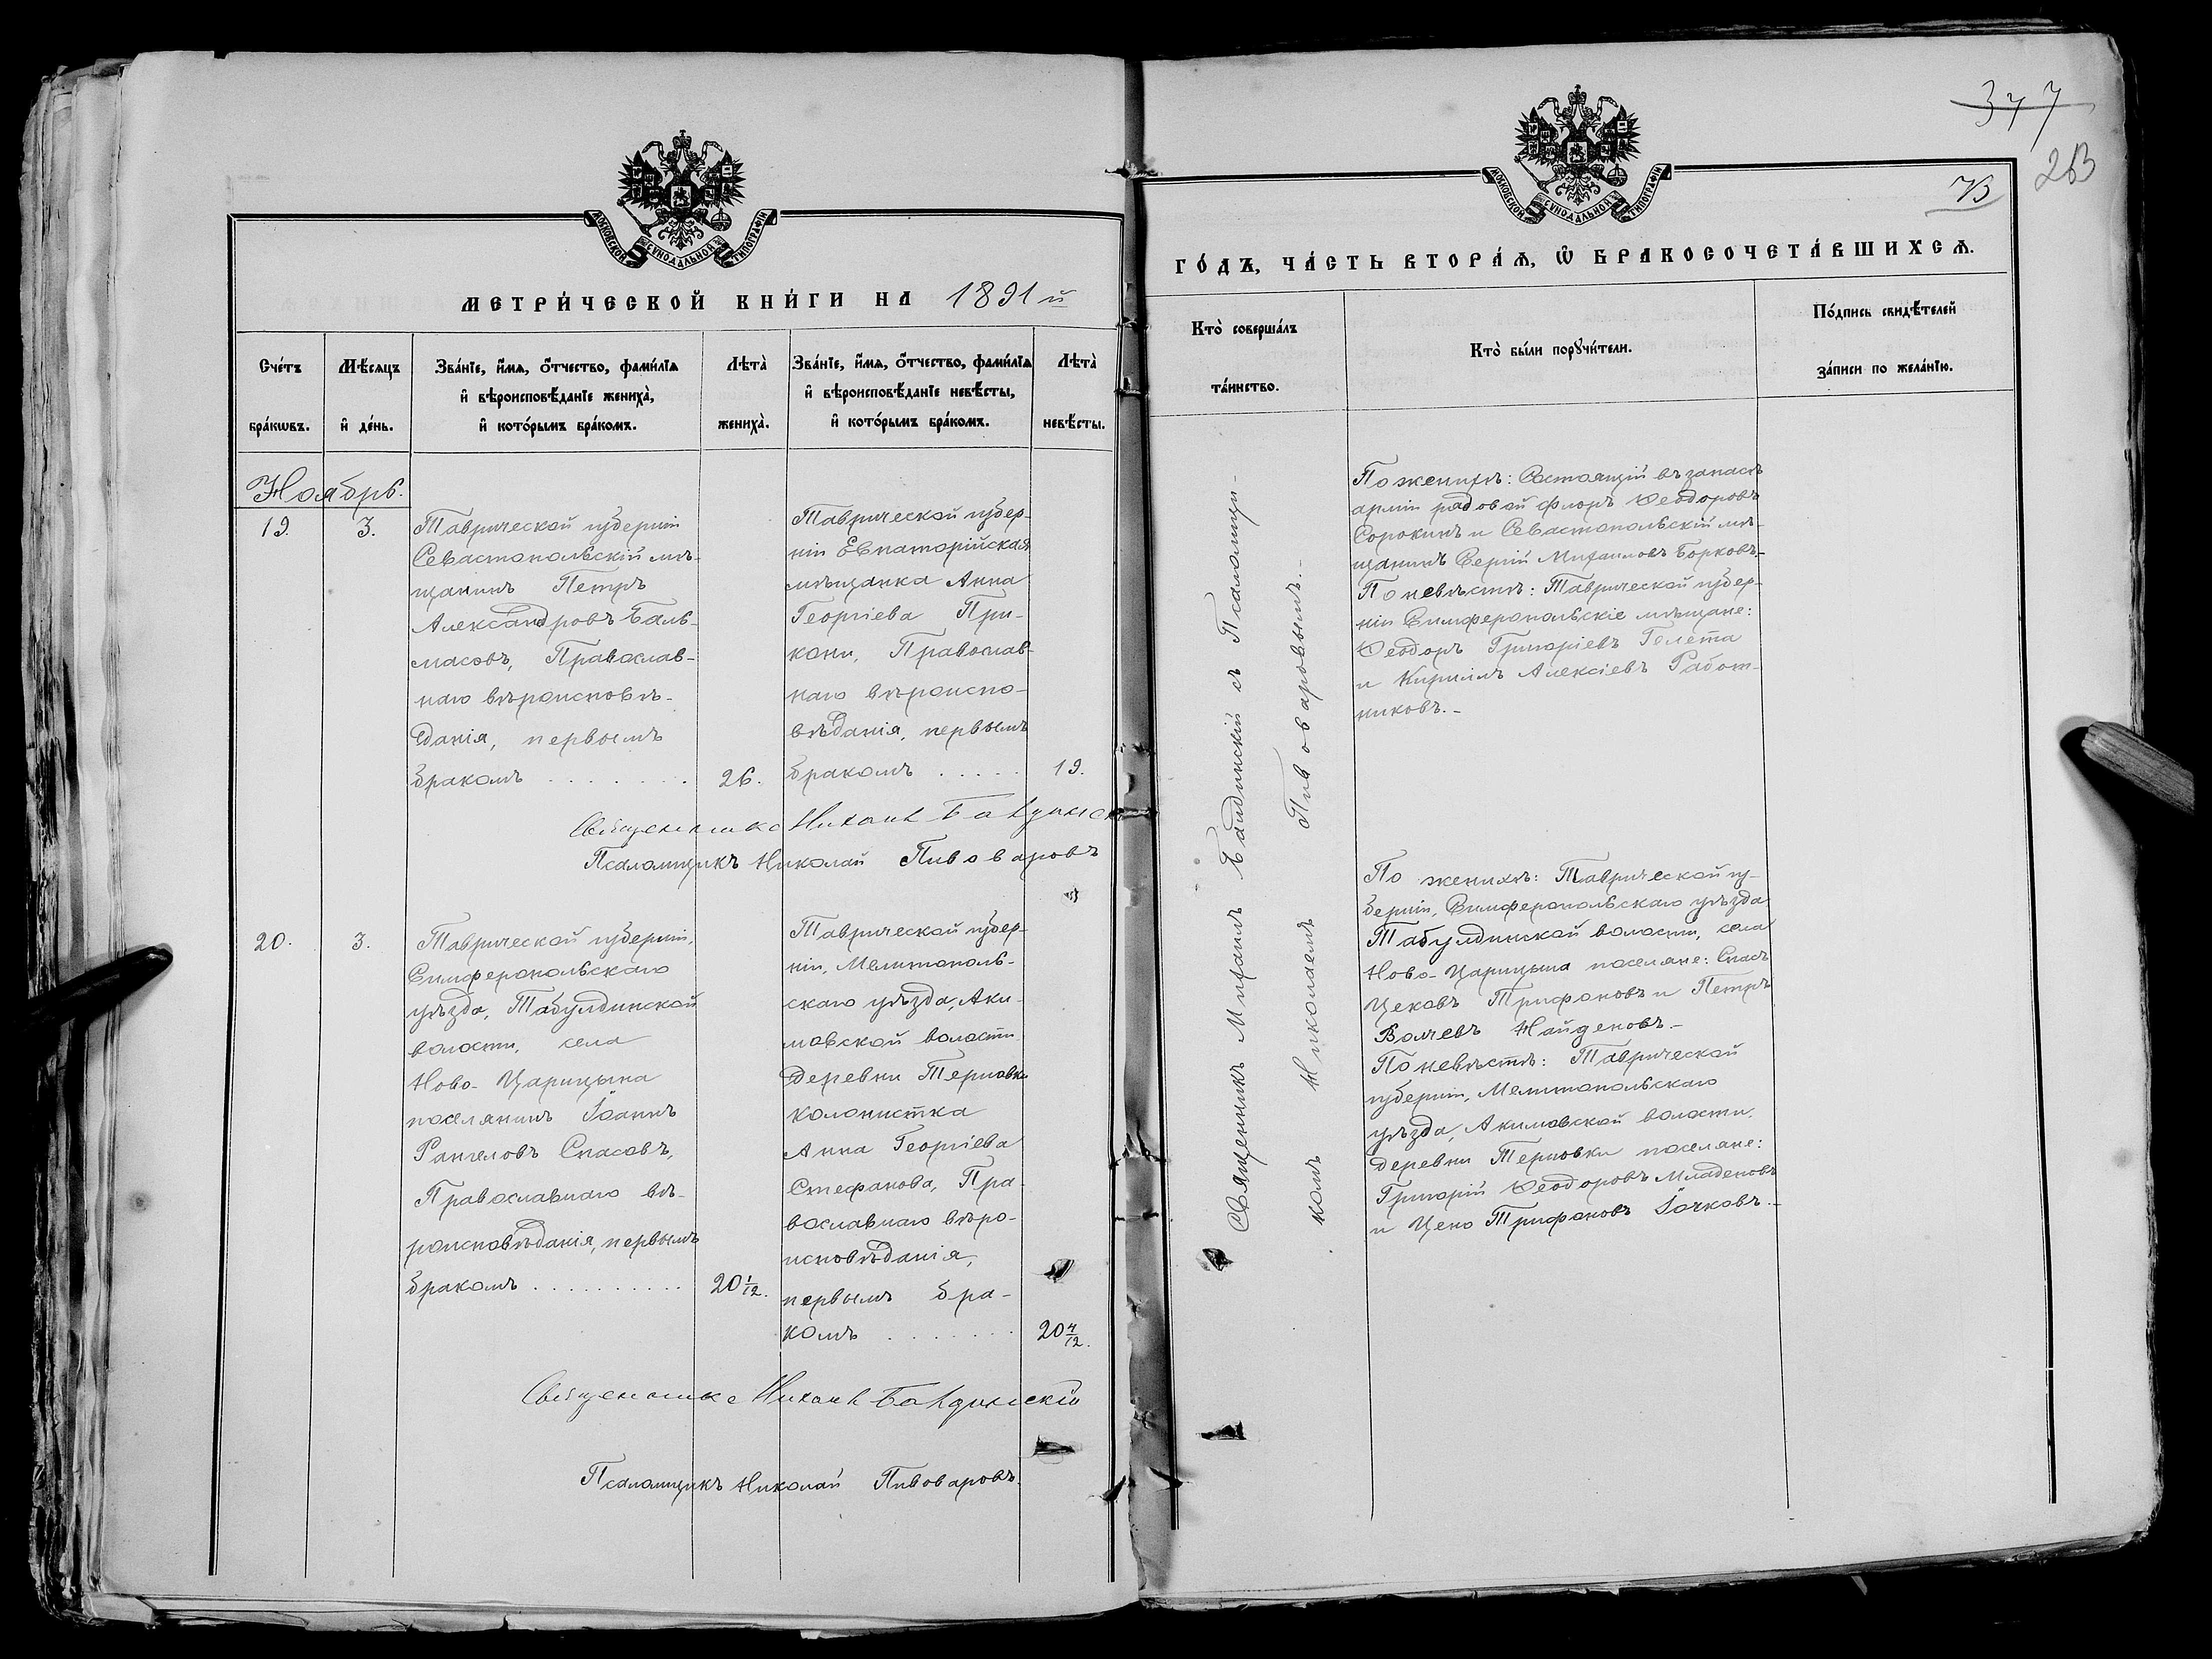 МОСКОВСКОЙ СѴНОДАЛЬНОЙ ТИПОГРАФІИ
МЕТРИ́ЧЕСКОЙ КНИ́ГИ НА 1891 й
Сче́тъ бра́кѡвъ.
Мѣ́сяцъ и҆ де́нь.
Зва́нїе, и҆́мѧ, ѻ҆́тчество, фами́лїѧ
и҆ вѣроисповѣ́данїе жениха̀,
и҆ кото́рымъ бра́комъ.
Лѣта̀ жениха̀.
Зва́нїе, и҆́мѧ, ѻ҆́тчество, фами́лїѧ
и҆ вѣроисповѣ́данїе невѣ́сты,
и҆ кото́рымъ бра́комъ.
Лѣта̀ невѣ́сты.
Ноябрь.
19.
3.
Таврической губерніи
Севастопольскій мѣ-
щанинъ Петръ
Александровъ Баль-
масовъ, Православ-
наго вѣроисповѣ-
данія, первымъ
бракомъ . . . . . . .
26.
Таврической губер-
ніи Евпаторійская
мѣщанка Анна
Георгіева При-
кони, Православ-
наго вѣроиспо-
вѣданія, первымъ
бракомъ . . . . .
19.
Священникъ Михаил Балдинск
Псаломщикъ Николай Пивоваровъ
20.
3.
Таврической губерніи,
Симферопольскаго
уѣзда, Табулдинской
волости, села
Ново-Царицына
поселянинъ Іоаннъ
Рангеловъ Спасовъ,
Православнаго вѣ-
роисповѣданія, первымъ
бракомъ . . . . . . . . . .
20 1/12.
Таврической губер-
ніи, Мелитополь-
скаго уѣзда, Аки-
мовской волости
деревни Терновки
колонистка
Анна Георгіева
Стефанова, Пра-
вославнаго вѣро-
исповѣданія,
первымъ бра-
комъ . . . . . . .
20 4/12.
Священникъ Михаил Балдинскій
Псаломщикъ Николай Пивоваровъ.
377
73
МОСКОВСКОЙ СѴНОДАЛЬНОЙ ТИПОГРАФІИ
ГО́ДЪ, ЧА́СТЬ ВТОРА́Ѧ, Ѡ҆ БРАКОСОЧЕТА́ВШИХСѦ.
Кто̀ соверша́лъ та́инство.
Кто̀ бы́ли порꙋчи́тели.
По́дпись свидѣ́телей
за́писи по жела́нїю.
Священникъ Михаилъ Балдинскій съ Псаломщи-
комъ Николаемъ Пивоваровымъ.-
По женихѣ: Состоящій въ запасѣ
арміи рядовой Флоръ Ѳеодоровъ
Сорокинъ и Севастопольскій мѣ-
щанинъ Сергій Михаиловъ Борковъ-
По невѣстѣ: Таврической губер-
ніи Симферопольскіе мѣщане:
Ѳеодоръ Григоріевъ Голета
и Кириллъ Алексіевъ Работ-
никовъ.-
По женихѣ: Таврической гу-
берніи, Симферопольскаго уѣзда
Табулдинской волости, села
Ново-Царицына поселяне: Спасъ
Цековъ Трифоновъ и Петръ
Волчевъ Найденовъ.-
По невѣстѣ: Таврической
губерніи, Мелитопольскаго
уѣзда, Акимовской волости,
деревни Терновки поселяне:
Григорій Ѳеодоровъ Младеновъ
и Цено Трифоновъ Іочковъ.-